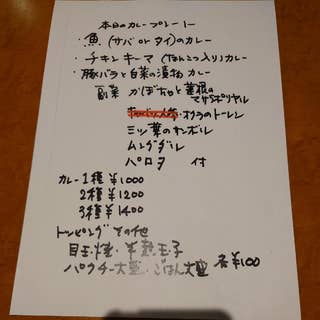 本日のカレープレート
・魚(サバ or タイ)のカレー
・チキンキーマ(なんこつ入り)カレー
・豚バラと白菜の漬物カレー
副菜 かぼちゃと蓮根の
マサラポリヤル
オクラのトーレン
三ッ葉のサンボル
ムングダル
パロタ 付
カレー1種 ¥1000
2種 ¥1200
3種 ¥1400
トッピングその他
目玉焼・半熟玉子
パクチー大盛・ごはん大盛 各¥100